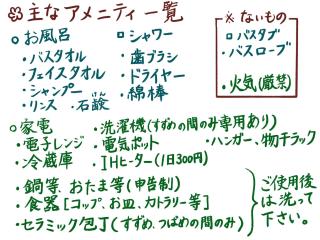 主なアメニティ一覧
お風呂
・バスタオル
・フェイスタオル
・シャンプー
・リンス ・石鹸
シャワー
・歯ブラシ
・ドライヤー
・綿棒
※ ないもの
バスタブ
・バスローブ
・火気(厳禁)
家電
・電子レンジ
・冷蔵庫
・洗濯機(すずめの間のみ専用あり)
・電気ポット
・ハンガー、物干ラック
・IHヒーター(1日300円)
・鍋等、おたま等(申告制)
・食器[コップ、お皿、カトラリー等]
・セラミック包丁(すずめ、つばめの間のみ)
ご使用後
は洗って
下さい。